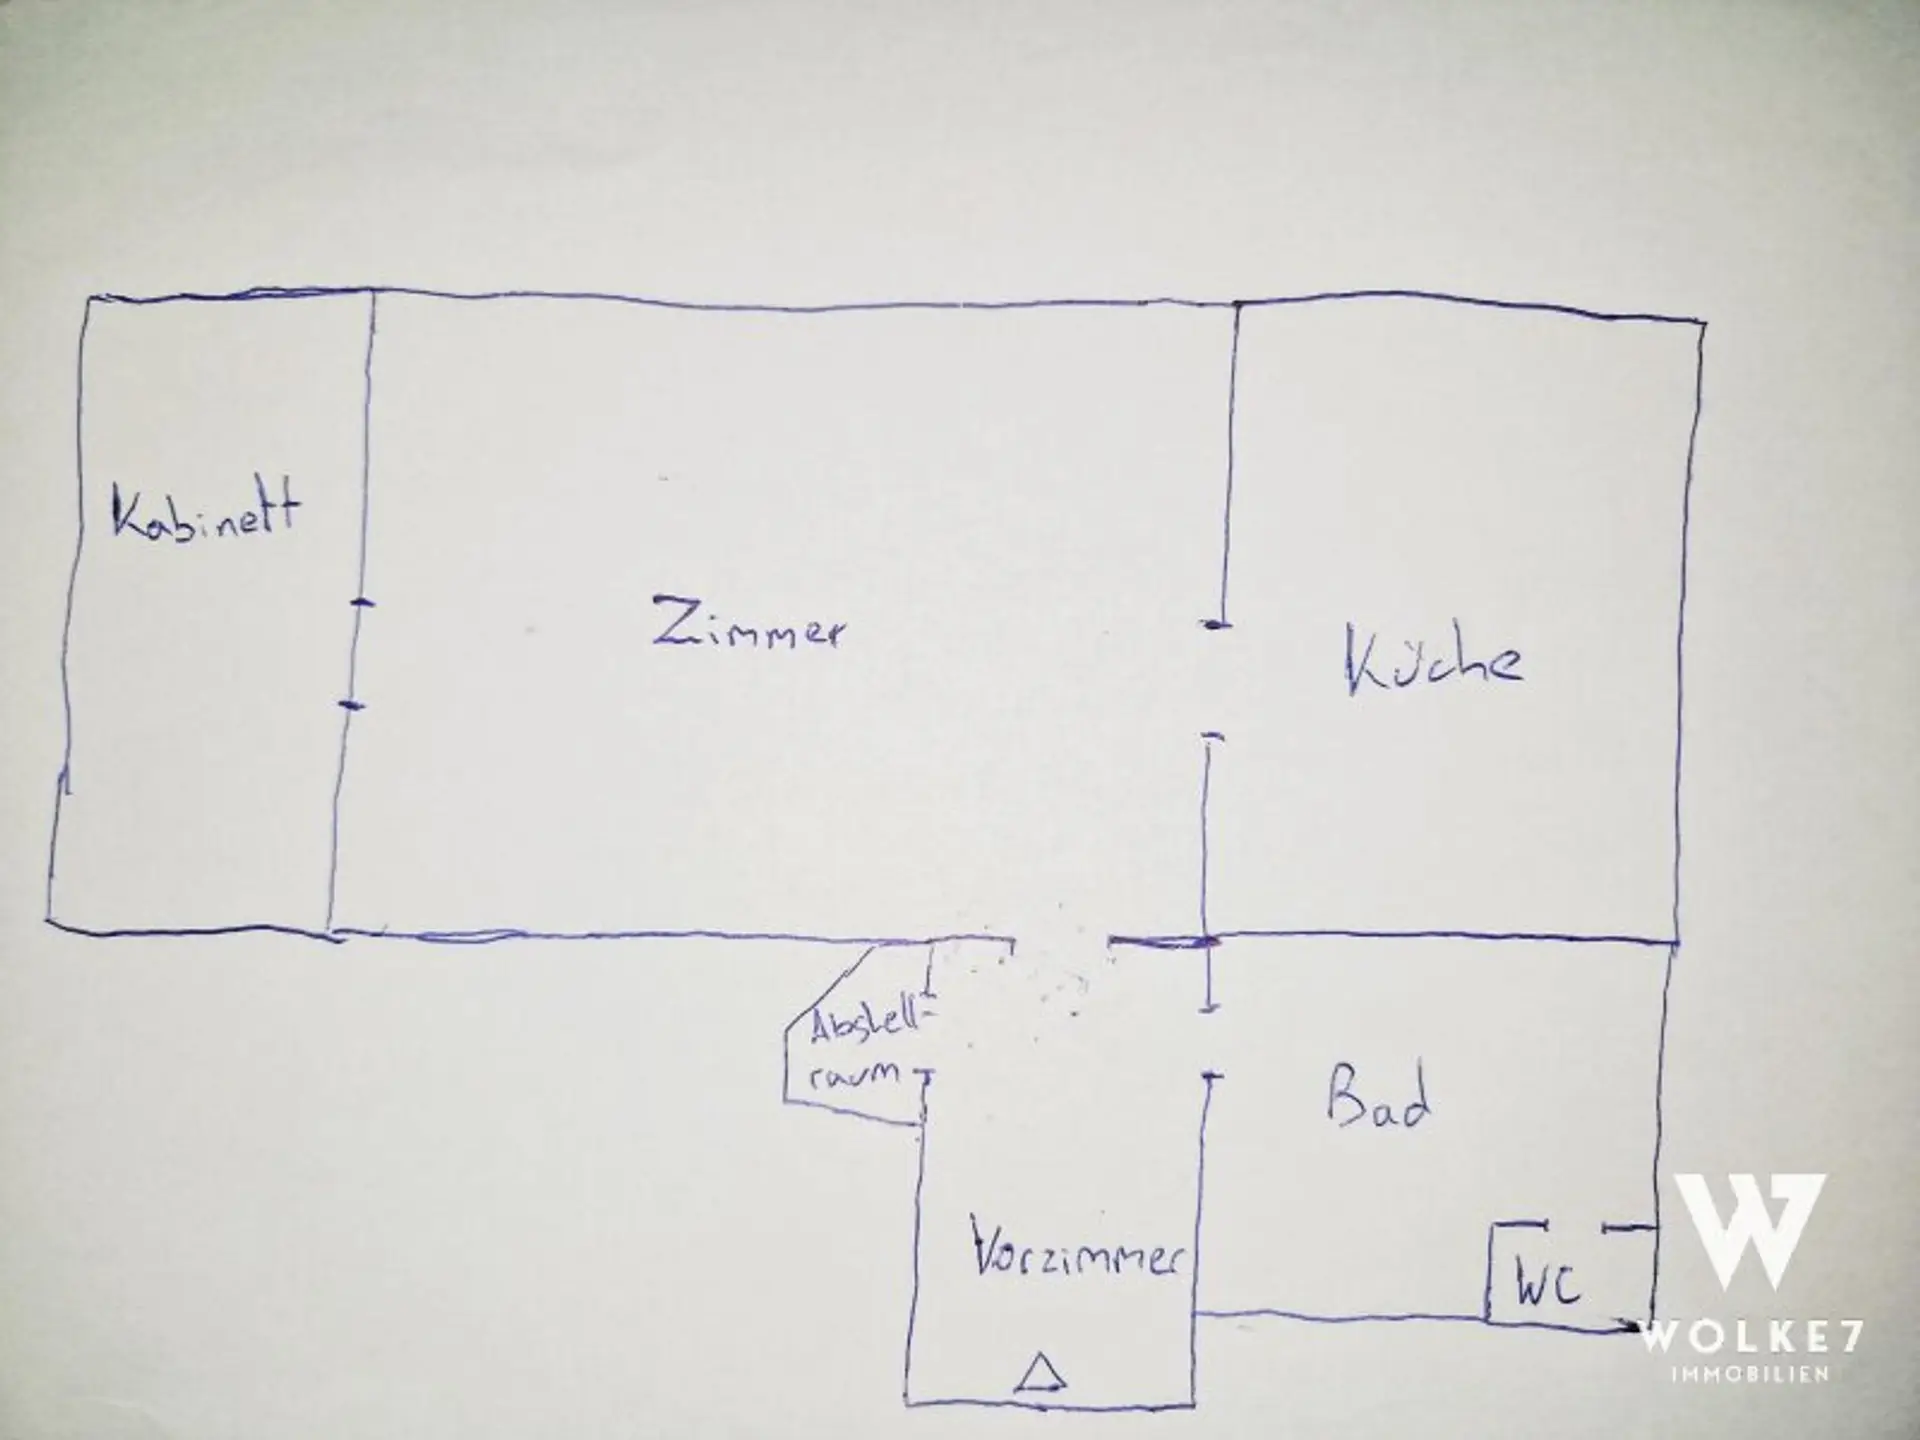 Kabinett
Zimmer
Küche
Abstell-
raum
Bad
Vorzimmer
WC
WOLKE7
IMMOBILIEN